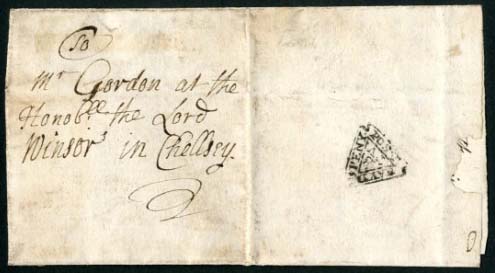 To
Mr Gordon at the
Honoble the Lord
Winsor's in Chellsey.
PENY POST PAYD